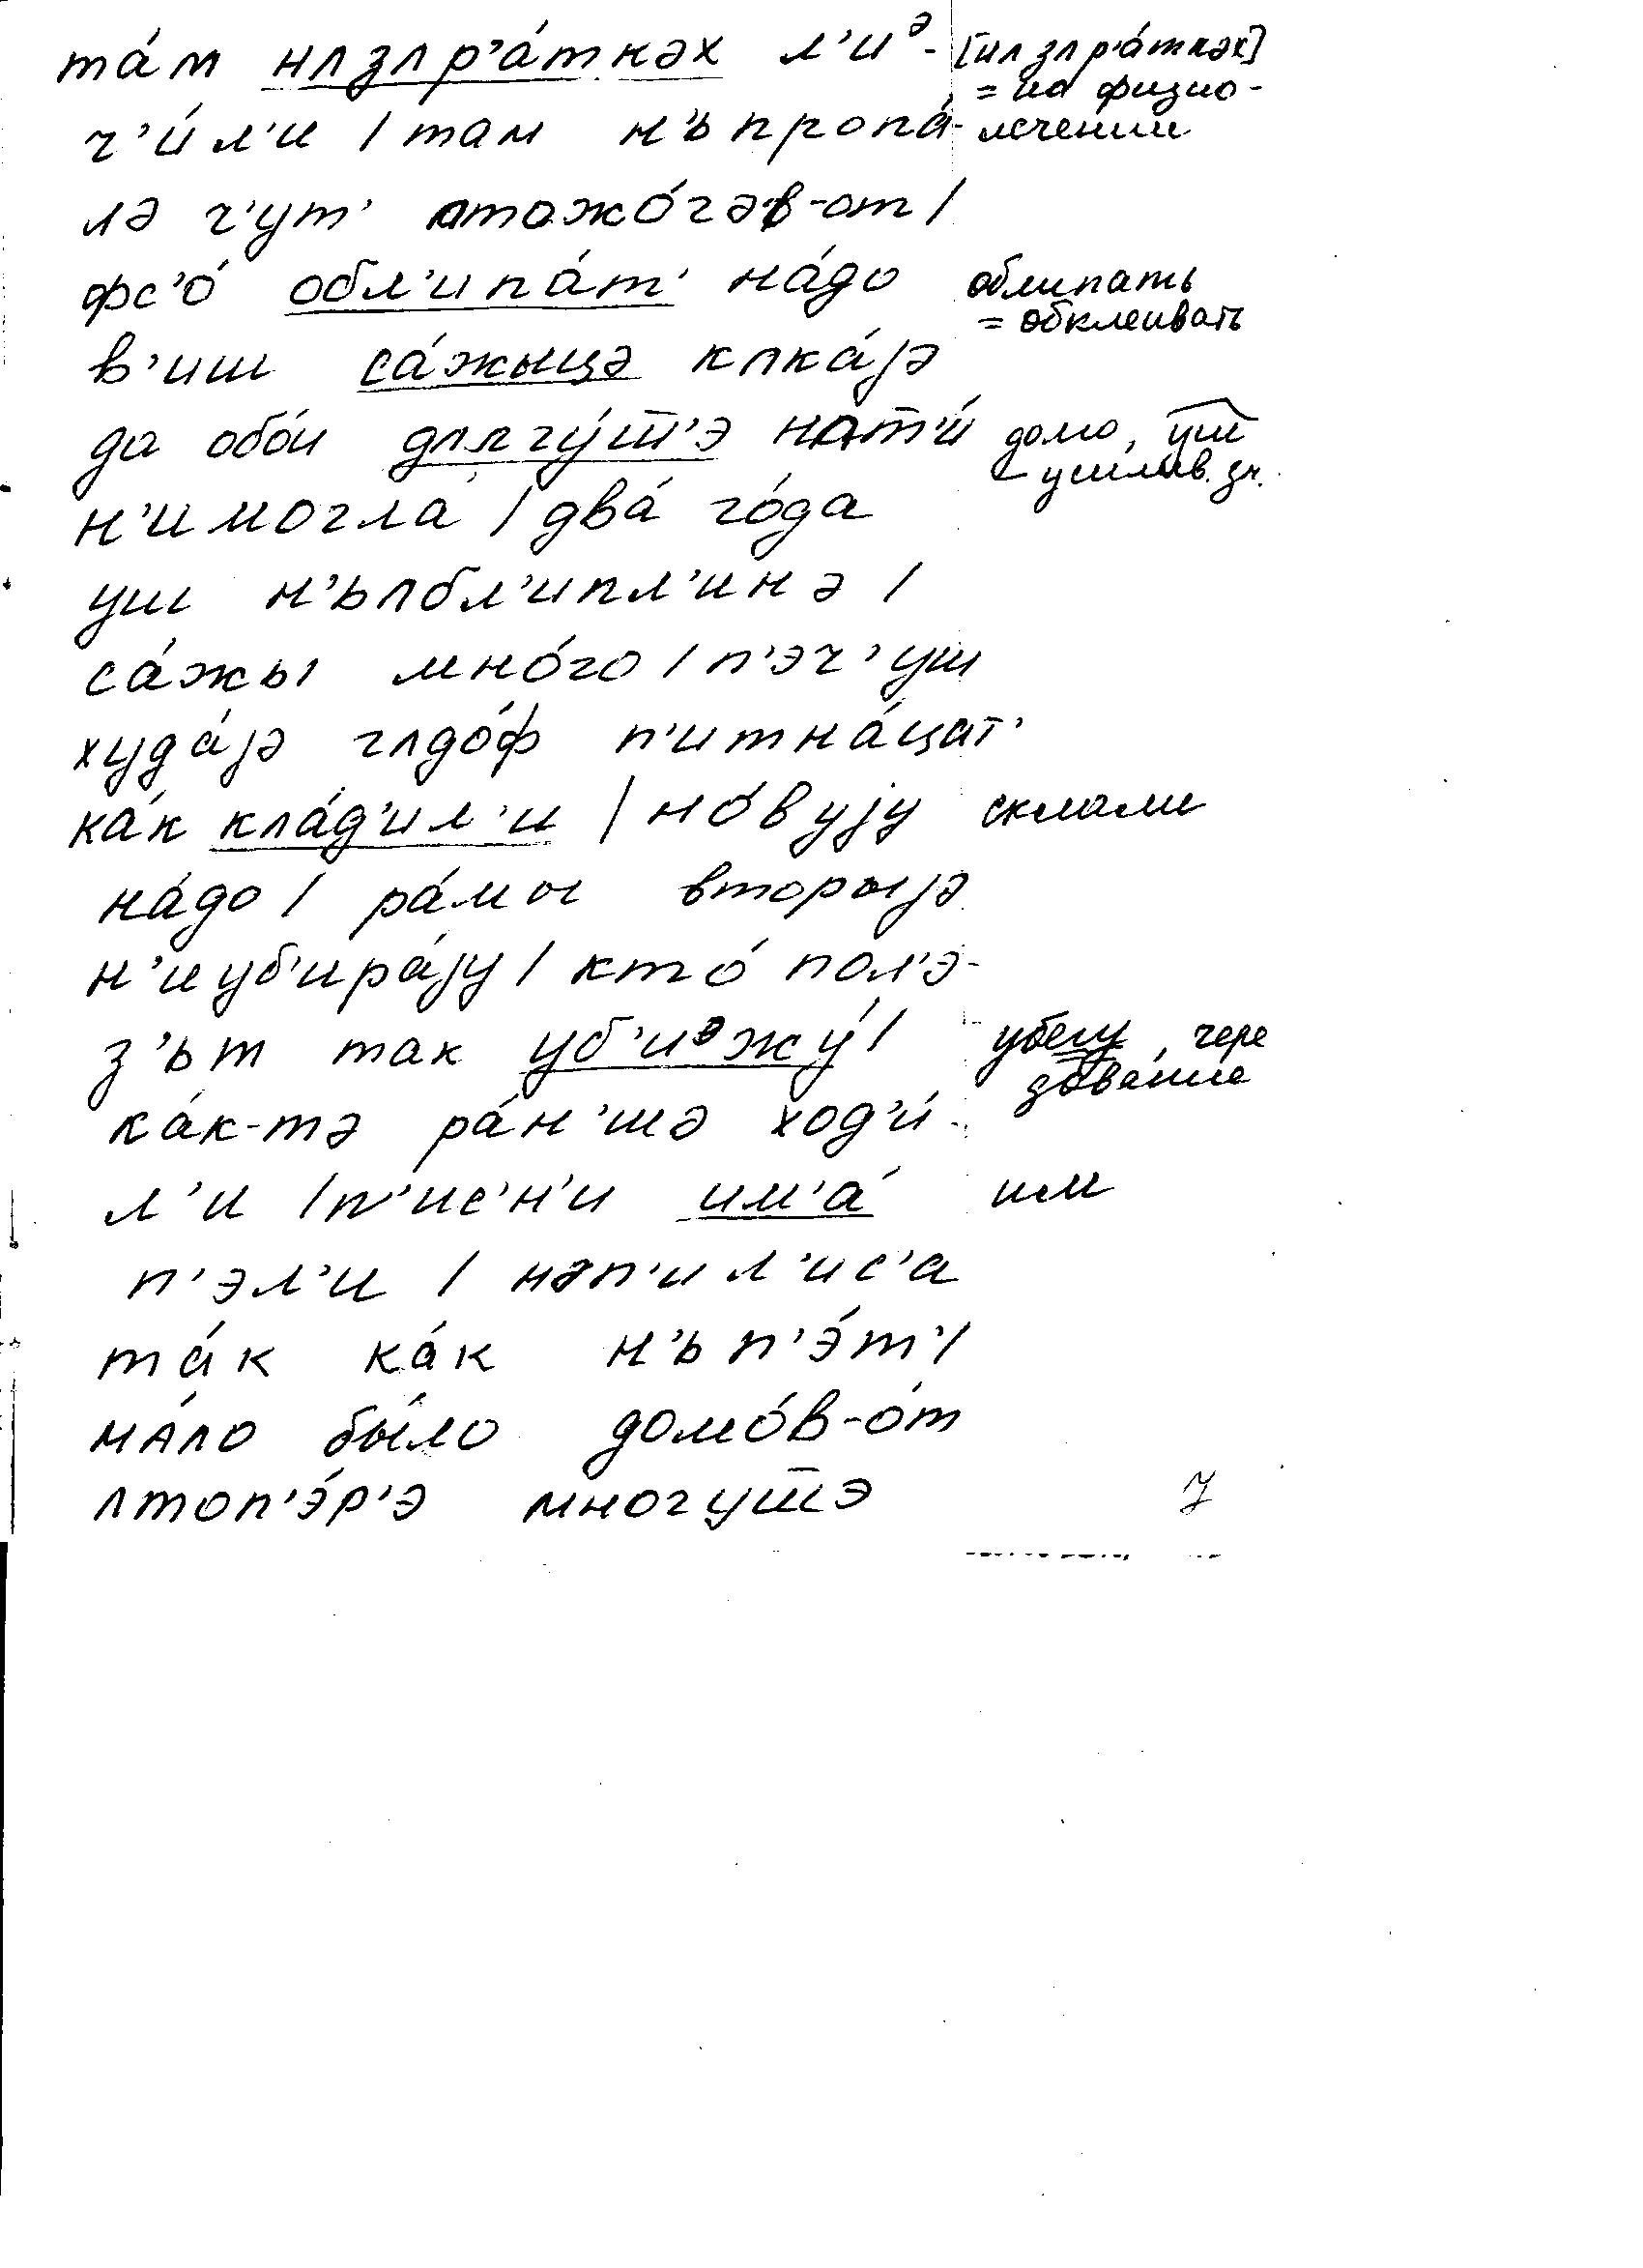 та́м нʌзʌр'а́ткәх л'иᵊ- [нʌзʌр'а́ткәх]
= на физио-
ч'и́л'и / там н'ъпропа́- лечении
лә ч'ут' отожо́гәв-от /
фс'о́ обл'ипа́т' на́до облипать
= обклеивать
в'иш са́жыцә кʌка́jә
да обо́и
н'имогла́ / два́ го́да
уш н'ъʌбл'ипл'инә /
са́жы мно́го / п'эч' уш
худа́jә гʌдо́ф п'итна́цат'
ка́к кла́д'ил'и / но́вуjу склали
на́до / ра́мы вторыjә
н'иуб'ира́jу / кто́ пол'э-
з'ът так уб'иᵊжу́ / убегу, чере
дование
ка́к-тә ра́н'шә ход'и́-
л'и / п'ис'н'и им'а́ им
п'эл'и / нәп'ил'ис'а
та́к ка́к н'ъп'э́т' /
ма́ло бы́ло домо́в-о́т
ʌтоп'э́р'э многуш̅э
7